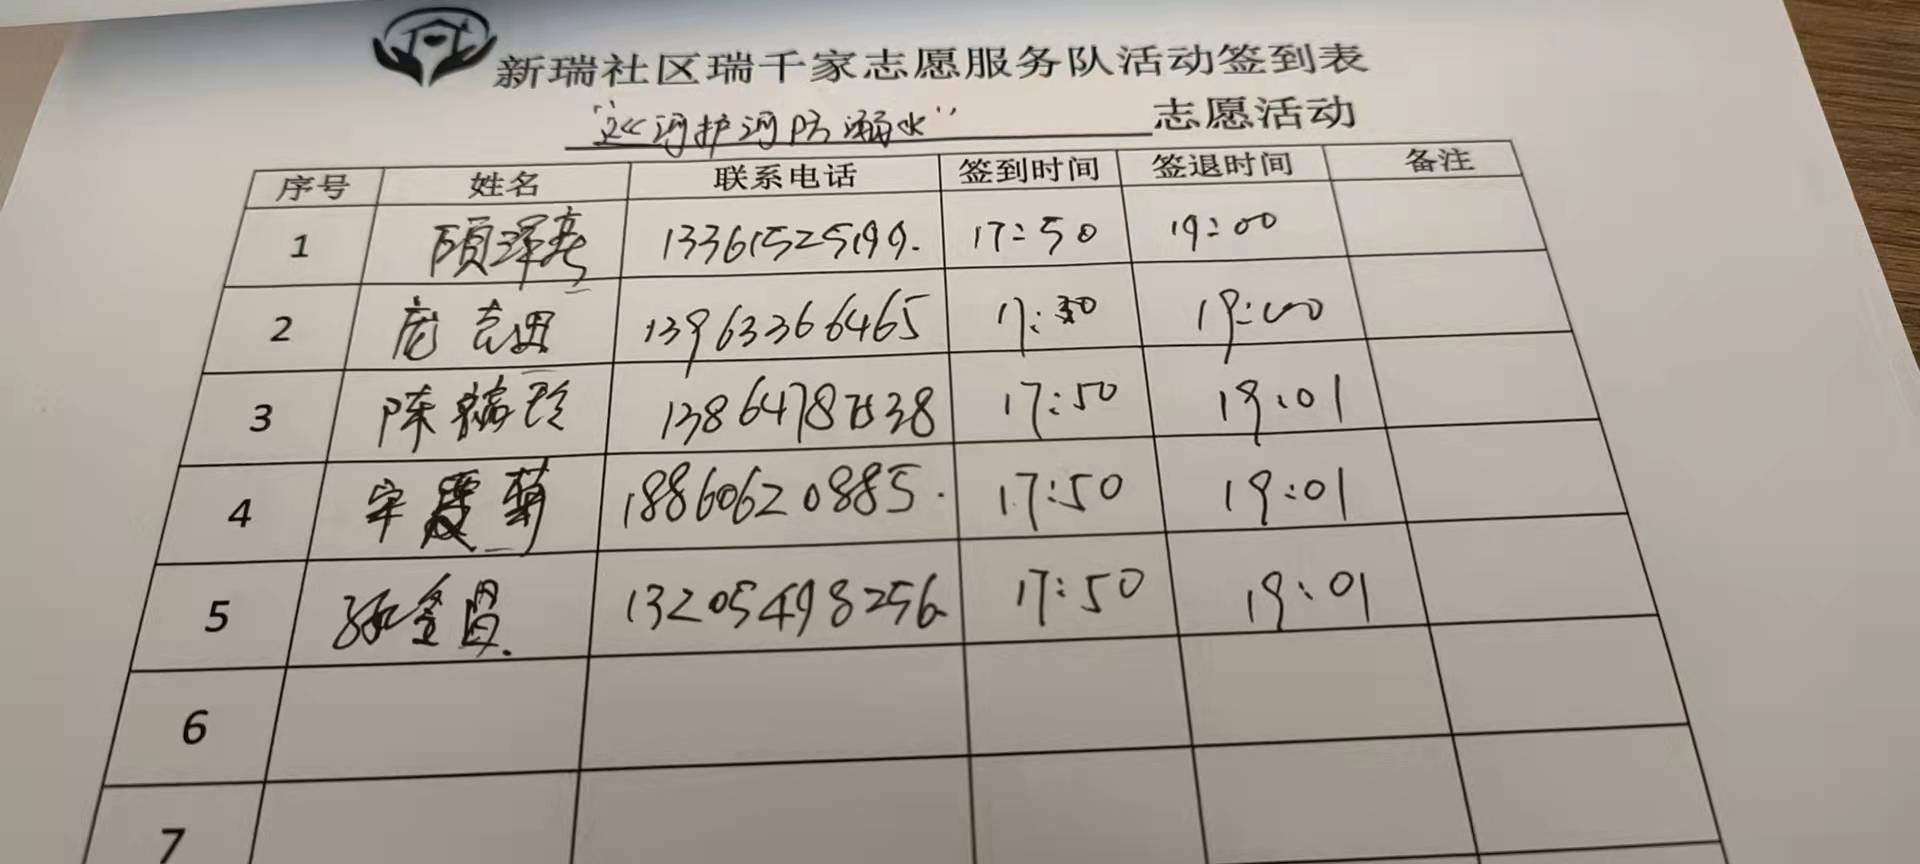 新瑞社区瑞千家志愿服务队活动签到表
"巡河护河防溺水" 志愿活动
序号 姓名 联系电话 签到时间 签退时间 备注
1 顾泽春 13361525199. 17:50 19:00
2 庞克 13963366465 17:50 19:00
3 陈 玲 13864787838 17:50 19:01
4 宋 菊 18860620885. 17:50 19:01
5 孙 13205498256 17:50 19:01
6
7